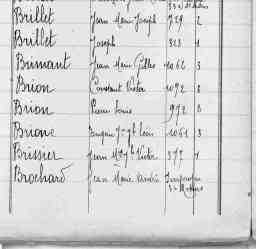 Brillet Jean Marie Joseph 729 2
Brillet Joseph 323 1
Brimant Jean Marie Gilles 1062 3
Brion Constant Victor 1092 8
Brion Pierre Louis 972 8
Brione Eugène Léon 1061 3
Brissier Jean Victor 372 1
Brochard Jean Marie